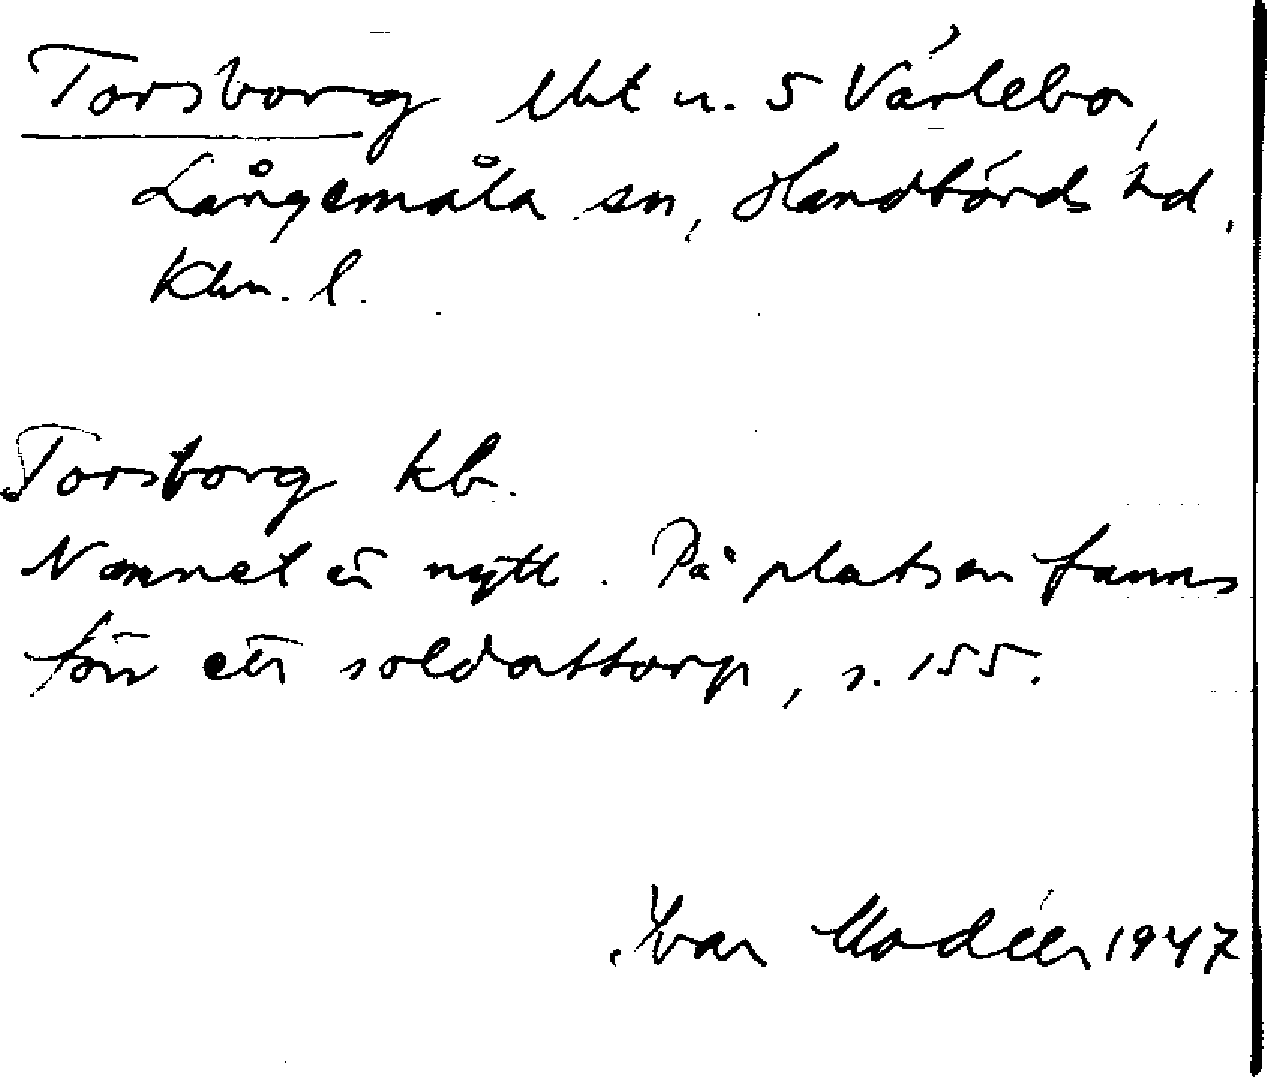 Torsborg lht u. 5 Värlebo,
Långemåla sn, Handbörds hd,
Klm. l.
Torsborg kb.
Namnet är nytt. På platsen fanns
förr ett soldattorp, s. 155.
Ivar Modéer 1947